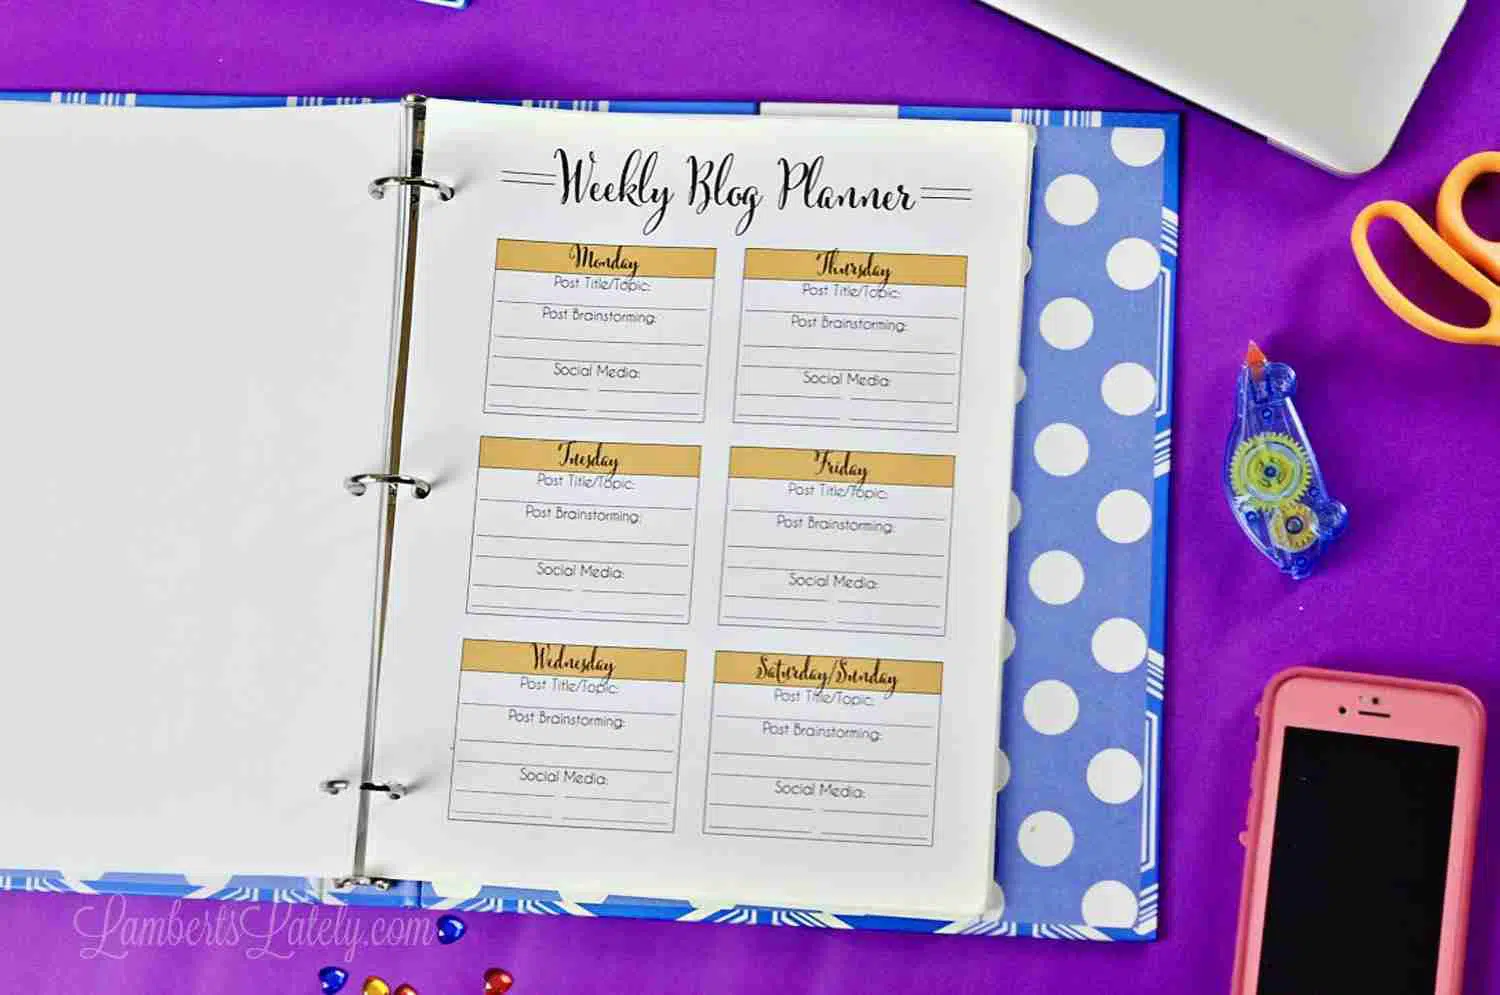 Weekly Blog Planner
Monday
Post Title/Topic:
Post Brainstorming:
Social Media:
Tuesday
Post Title/Topic:
Post Brainstorming:
Social Media:
Wednesday
Post Title/Topic:
Post Brainstorming:
Social Media:
Thursday
Post Title/Topic:
Post Brainstorming:
Social Media:
Friday
Post Title/Topic:
Post Brainstorming:
Social Media:
Saturday/Sunday
Post Title/Topic:
Post Brainstorming:
Social Media:
LambertsLately.com